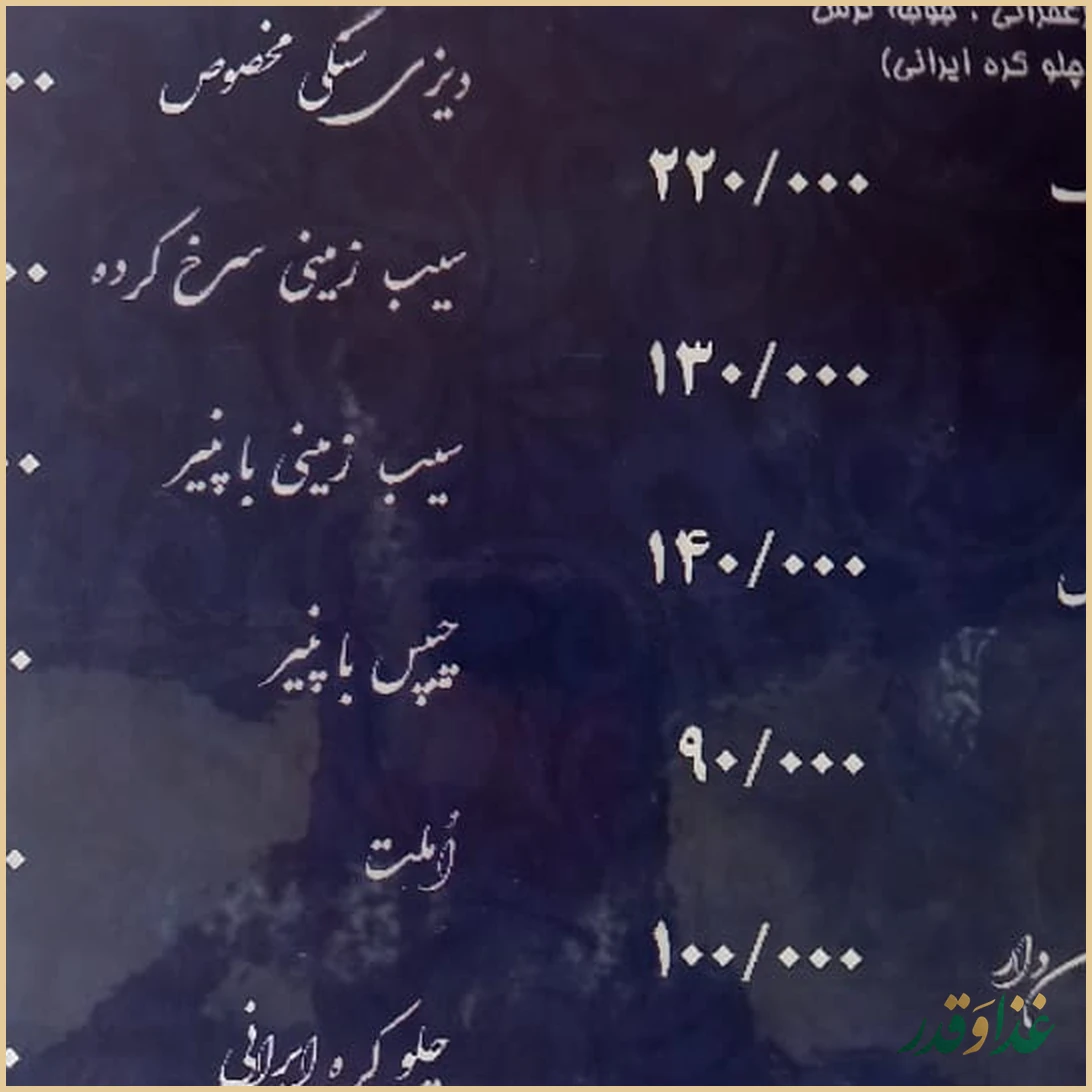 چلو کره ایرانی)
۲۲۰/۰۰۰
۱۳۰/۰۰۰
۱۴۰/۰۰۰
۹۰/۰۰۰
۱۰۰/۰۰۰
دیزی سنگی مخصوص
سیب زمینی سرخ کرده
سیب زمینی با پنیر
چیپس با پنیر
اُملت
چلو کره ایرانی
غذا وَ قدر